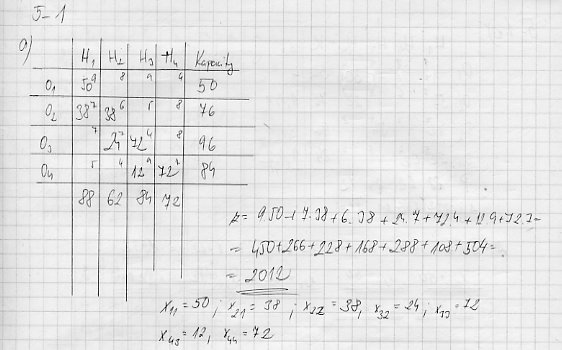 5-1
a)
H1 H2 H3 H4 Kapacity
O1 50 9 8 9 4 50
O2 38 7 38 6 5 8 76
O3 7 24 7 72 4 8 96
O4 5 4 12 9 72 7 84
88 62 84 72
z= 9.50+7.38+6.38+24.7+72.4+12.9+72.7=
= 450+266+228+168+288+108+504=
= 2012
x11=50; x21=38; x22=38, x32=24; x33=72
x43=12, x44=72